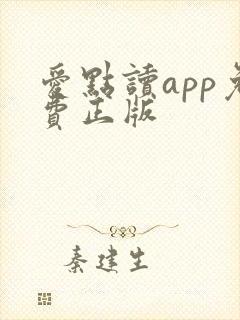 愛點讀app免
費正版
秦建生